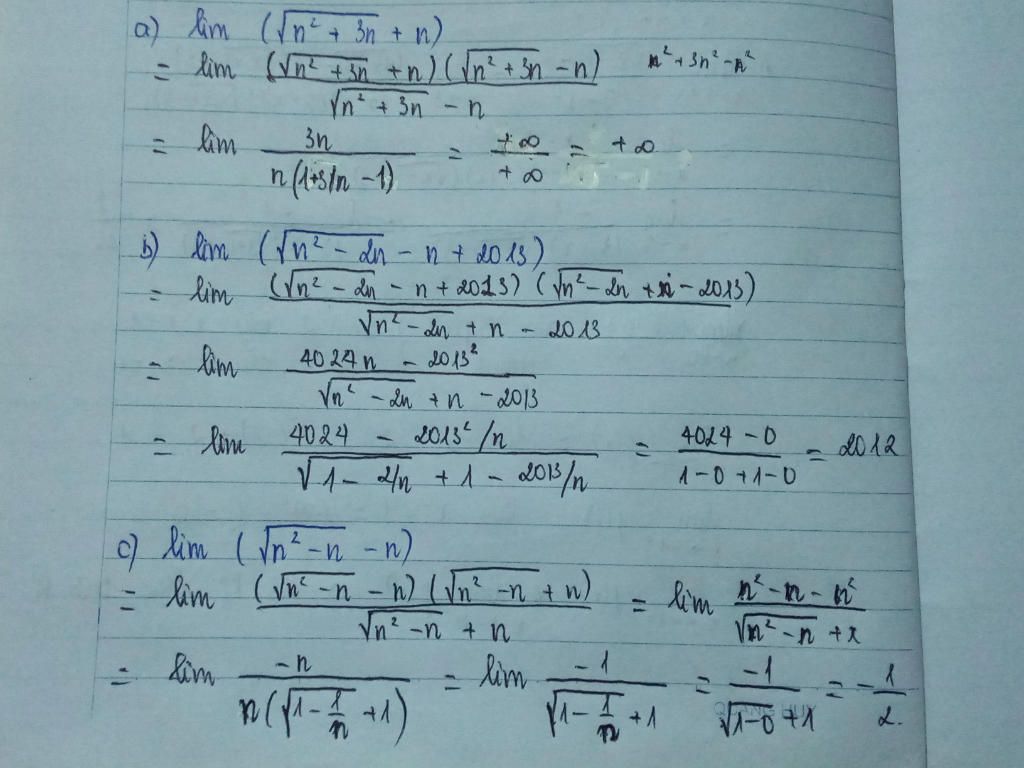 a) lim (√(n² + 3n) + n)
= lim ((√(n² + 3n) + n)(√(n² + 3n) − n))/(√(n² + 3n) − n) n² + 3n² − n²
= lim 3n/(n(1+3/n − 1)) = +∞/+∞ = +∞
b) lim (√(n² − 2n) − n + 2013)
= lim ((√(n² − 2n) − n + 2013)(√(n² − 2n) + n − 2013))/(√(n² − 2n) + n − 2013)
= lim (4024n − 2013²)/(√(n² − 2n) + n − 2013)
= lim (4024 − 2013²/n)/(√(1 − 2/n) + 1 − 2013/n) = (4024 − 0)/(1 − 0 + 1 − 0) = 2012
c) lim (√(n² − n) − n)
= lim ((√(n² − n) − n)(√(n² − n) + n))/(√(n² − n) + n) = lim (n² − n − n²)/(√(n² − n) + n)
= lim −n/(n(√(1 − 1/n) + 1)) = lim −1/(√(1 − 1/n) + 1) = −1/(√(1−0) + 1) = −1/2.
QUANG HUY